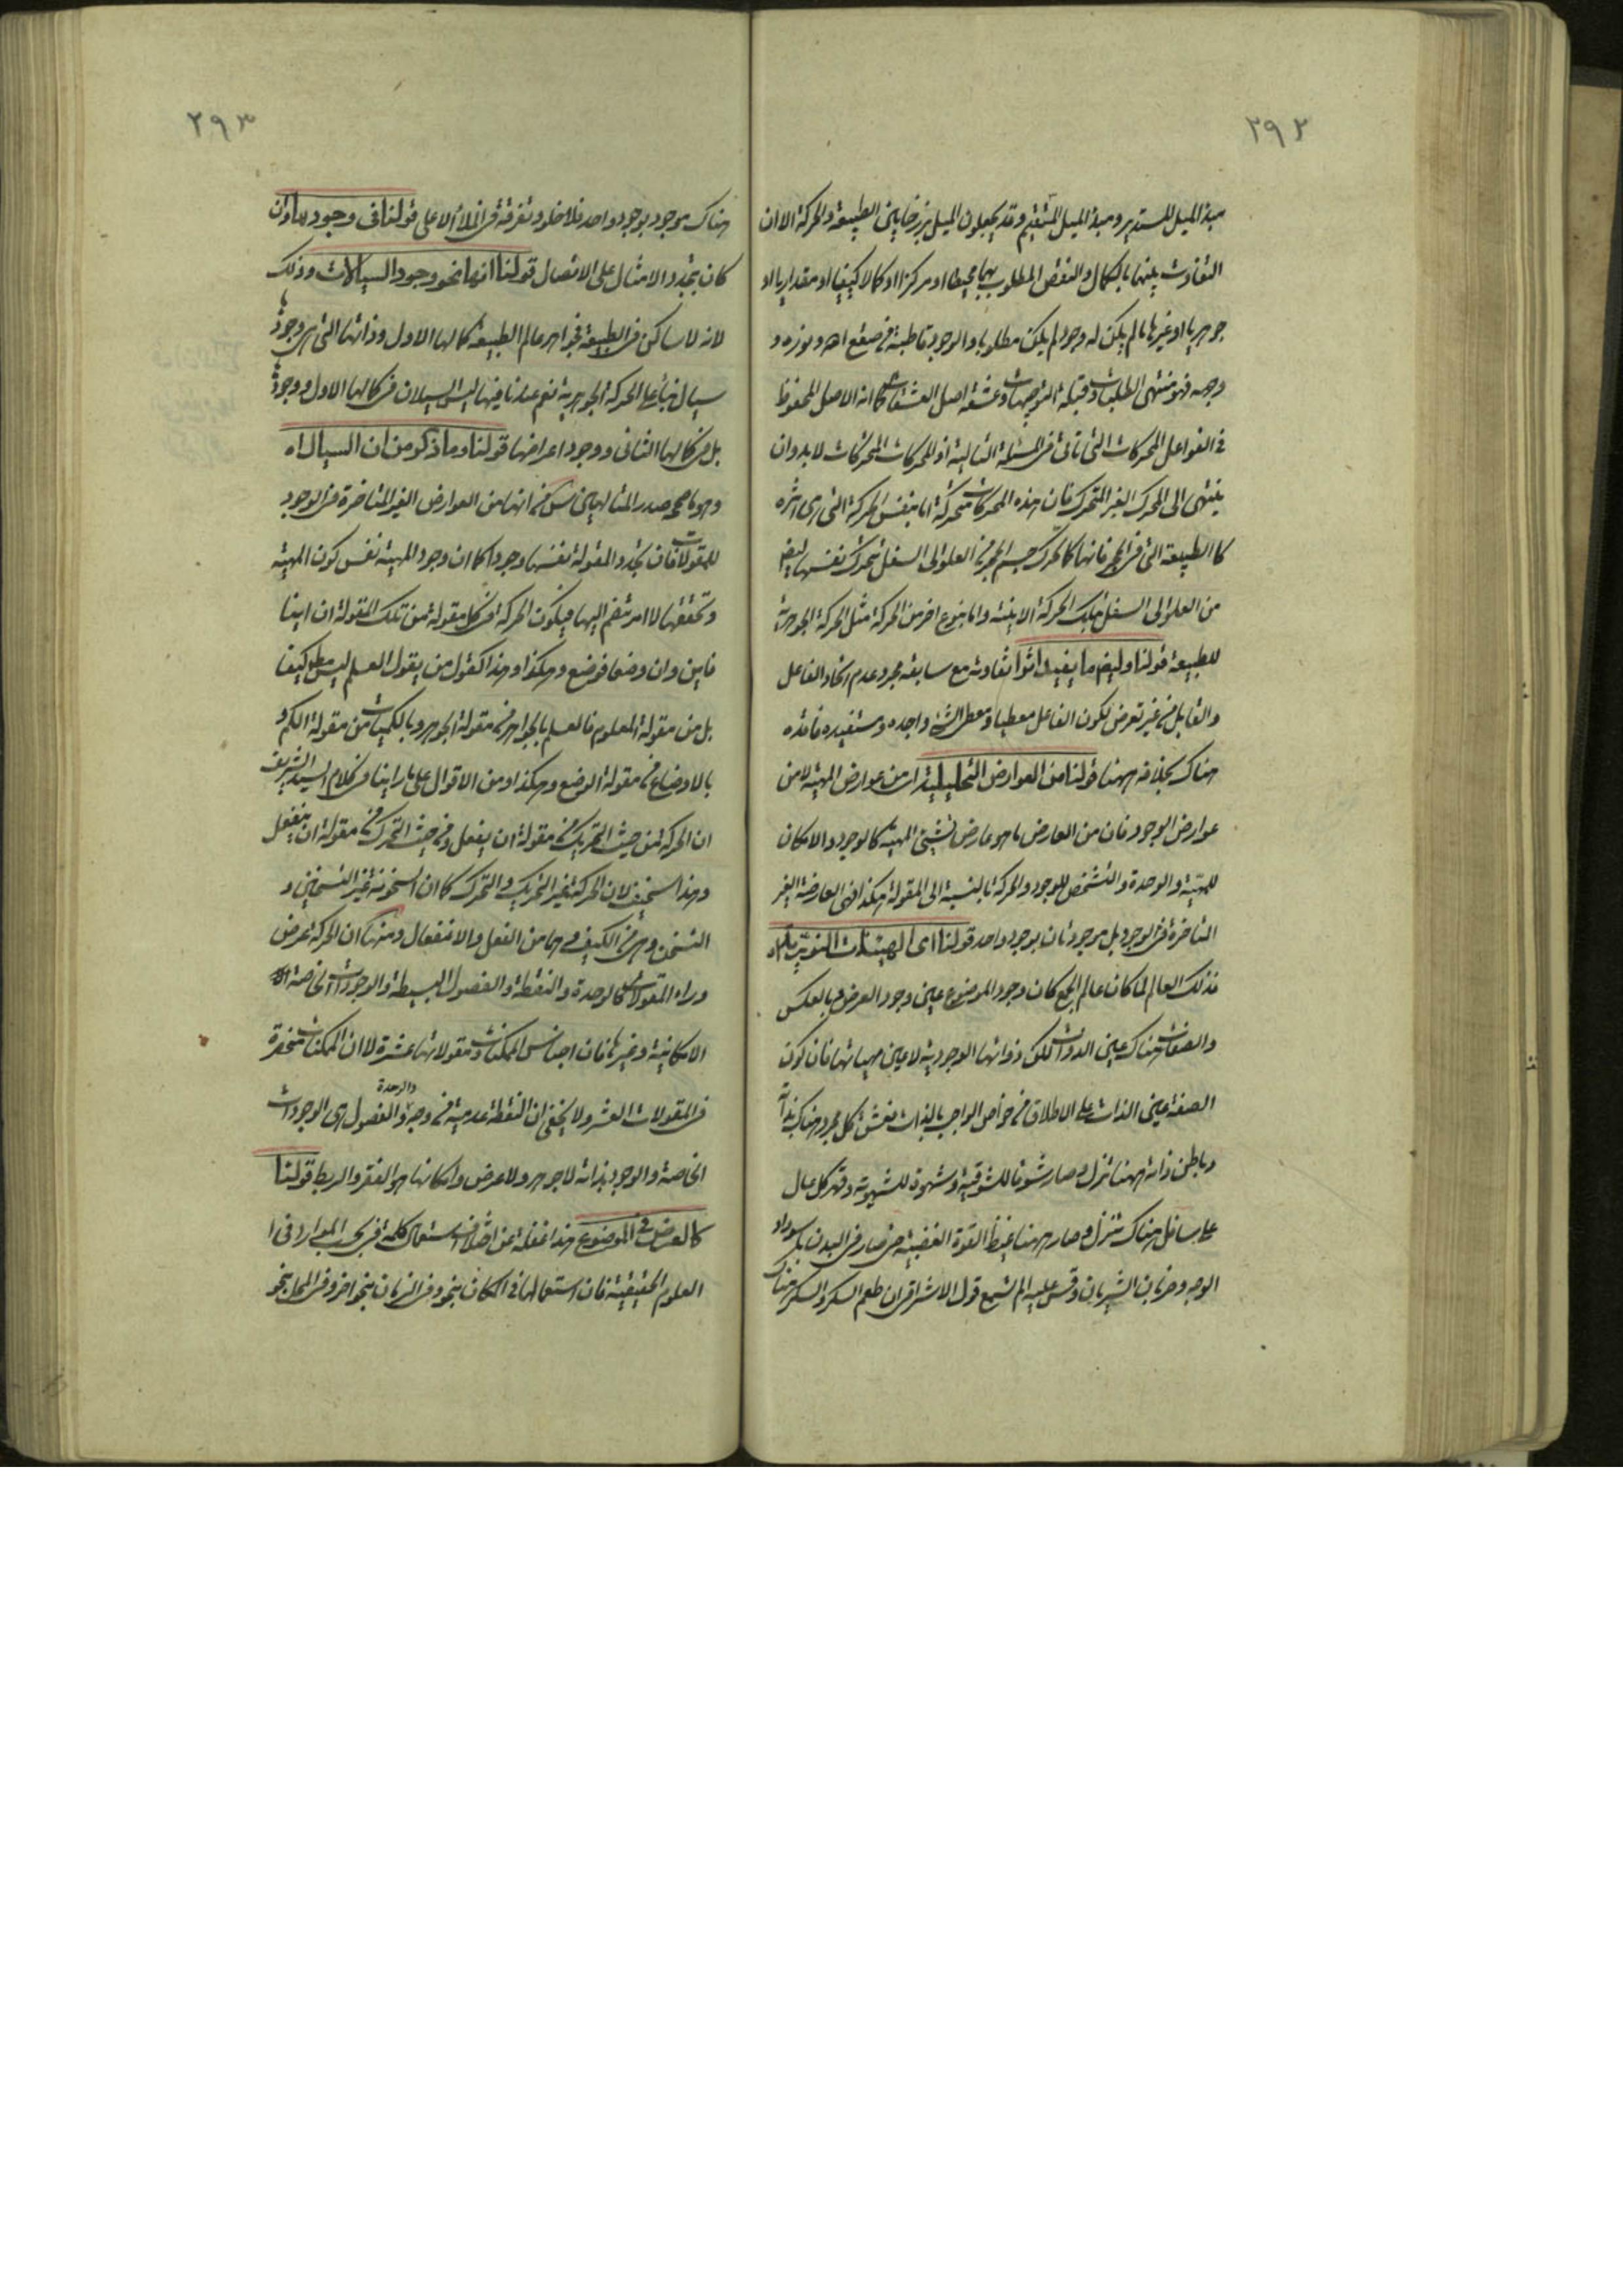 ٢٩٢
مبدء الميل المستدير ومبدء الميل المستقيم وقد يجعلون الميل برزخا بين الطبيعة والحركة الا ان
التفاوت بينهما بالكمال والنقص المطلوب بهما محيطا او مركزا او كمالا كيفيا او مقداريا او
جوهريا او غيرها ما لم يكن له وجود لم يكن مطلوبا والوجود قاطبة من صقع الله ونوره و
وجهه فهو منتهى الطلبات وقبلة التوجهات وعشقه اصل العشقات كما انه الاصل المحفوظ
فى الفواعل المحركات التى تأتى فى المسئلة التالية اذ المحركات المتحركات لابد وان
ينتهى الى المحرك الغير المتحرك فان هذه المحركات متحركة اما بنفس الحركة التى هى اثره
كالطبيعة التى فى الحجر فانها كما تحرك جسم الحجر من العلو الى السفل تتحرك بنفسها ايضا
من العلو الى السفل بتلك الحركة الاينية واما بنوع اخر من الحركة مثل الحركة الجوهرية
للطبيعة قولنا وليض ما يفيد اثوا تفاوته مع سابقه مجرد عدم اتحاد الفاعل
والقابل من غير تعرض لكون الفاعل معطيا ومعطى الشىء واجده ومستفيده فاقده
هناك بخلافه ههنا قولنا من العوارض التحليلية اى من عوارض المهية لا من
عوارض الوجود فان من العارض ما هو عارض لشيئى المهية كالوجود والامكان
للمهية والوحدة والتشخص للوجود والحركة بالنسبة الى المقولة هكذا فهى العارضة الغير
المتاخرة فى الوجود بل موجودتان بوجود واحد قولنا اى الهيئات النورية اه
فذلك العالم لما كان عالم الجمع كان وجود الموضوع عين وجود العرض وبالعكس
والصفات هناك عين الذوات لكن ذواتها الوجودية لا عين مهياتها فان كون
الصفة عين الذات على الاطلاق من خواص الواجب بالذات فعشق كل مجرد هناك بذاته
وباطن ذاته ههنا تنزل وصار شوقا للشوقية وشهوة للشهوية وقهر كل عال
على سافل هناك تنزل وصار ههنا غيظا للقوة الغضبية حتى صار فى البدن سواد
الوجه وضربان الشريان وقس عليه الم تسمع قول الاشراقى ان طعم السكر والسكر هناك
٢٩٣
هناك موجود بوجود واحد فلا خلو وتفرقة فى الملأ الاعلى قولنا فى وجود بلا وان
كان بتجدد الامثال على الاتصال قولنا انها نحو وجود السيالات وذلك
لانه لا ساكن فى الطبيعة فجواهر عالم الطبيعة كمالها الاول وذاتها التى هى وجودها
سيال بناء على الحركة الجوهرية نعم عند نافيها ليس السيلان فى كمالها الاول ووجودها
بل فى كمالها الثانى ووجود اعراضها قولنا وما ذكر من ان السيال اه
وهو ما صححه صدر المتألهين س من انها من العوارض الغير المتاخرة فى الوجود
للمقولات فان تجدد المقولة نفسها وجودا كما ان وجود المهية نفس كون المهية
وتحققها لا امر ينضم اليها فيكون الحركة فى كل مقولة من تلك المقولة ان اينا
فاين وان وضعا فوضع وهكذا وهذا كقول من يقول العلم ليس مطلقا كيفا
بل من مقولة المعلوم فالعلم بالجواهر من مقولة الجوهر وبالكميات من مقولة الكم و
بالاوضاع من مقولة الوضع وهكذا ومن الاقوال على ما راينا فى كلام السيد الشريف
ان الحركة من حيث التحريك من مقولة ان يفعل ومن حيث التحرك من مقولة ان ينفعل
وهذا سخيف لان الحركة غير التحريك والتحرك كما ان السخونة غير التسخين و
التسخن وهى من الكيف وهما من الفعل والانفعال ومنها ان الحركة عرض
وراء المقولات كالوحدة والنقطة والفصول البسيطة والوجودات الخاصة
الامكانية وغيرها فان اجناس الممكنات ومقولاتها عشرة لا ان الممكنات منحصرة
فى المقولات العشر ولا يخفى ان النقطة عدمية من وجه والوحدة والفصول هى الوجودات
الخاصة والوجود بذاته لا جوهر ولا عرض وامكانها هو الفقر والربط قولنا
كالعرض فى الموضوع هذا غفلة عن اختلاف استعمال كلمة فى بحسب الموارد فى ا
العلوم الحقيقية فان استعمالها فى المكان بنحو وفى الزمان بنحو اخر وفى المحل بنحو